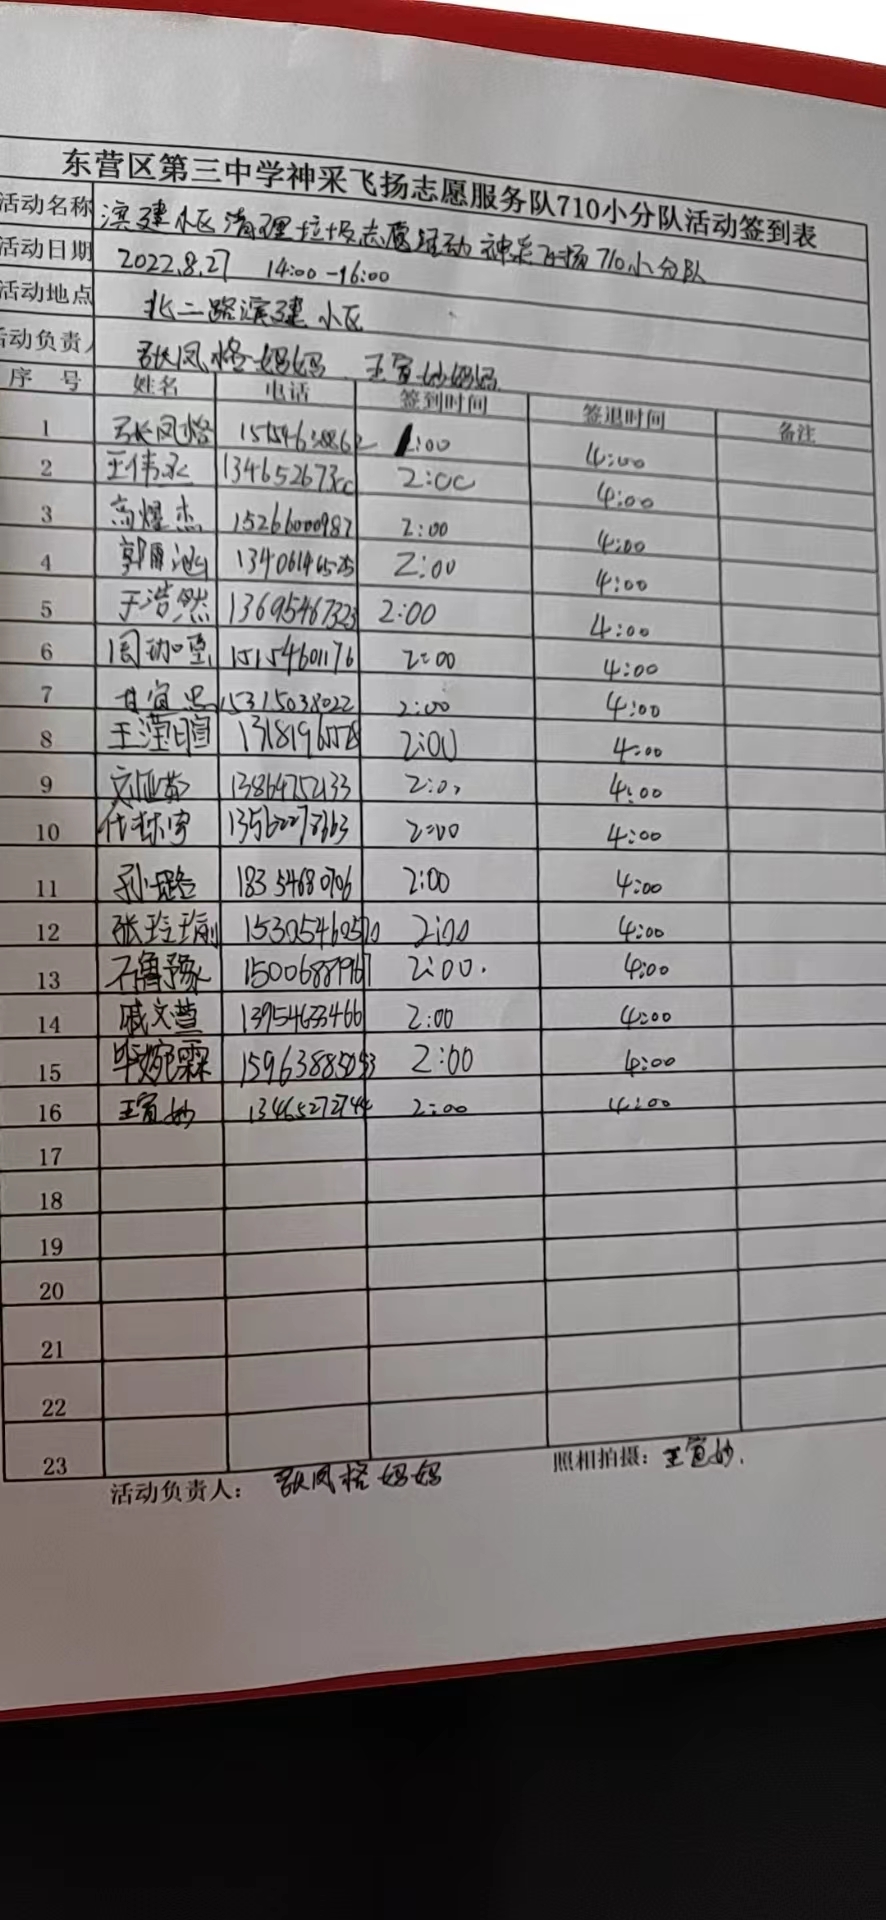 东营区第三中学神采飞扬志愿服务队710小分队活动签到表
活动名称 滨建小区清理垃圾志愿活动 神采飞扬710小分队
活动日期 2022.8.27 14:00-16:00
活动地点 北二路滨建小区
活动负责人 张凤格妈妈 王宣妙妈妈
序号 姓名 电话 签到时间 签退时间 备注
1 张凤格 4:00
2 王伟永 2:00 4:00
3 高煜杰 15266000987 2:00 4:00
4 2:00 4:00
5 于浩然 13695467323 2:00 4:00
6 15154601176 2:00 4:00
7 15315038022 2:00 4:00
8 王滢暄 2:00 4:00
9 13864752133 4:00
10 2:00 4:00
11 孙璐 2:00 4:00
12 2:00 4:00
13 石鲁豫 2:00. 4:00
14 戚文萱 13954633466 2:00 4:00
15 毕婉霖 15963885053 2:00 4:00
16 王宣妙 13465272744 2:00 4:00
17
18
19
20
21
22
23
活动负责人： 张凤格妈妈 照相拍摄： 王宣妙.